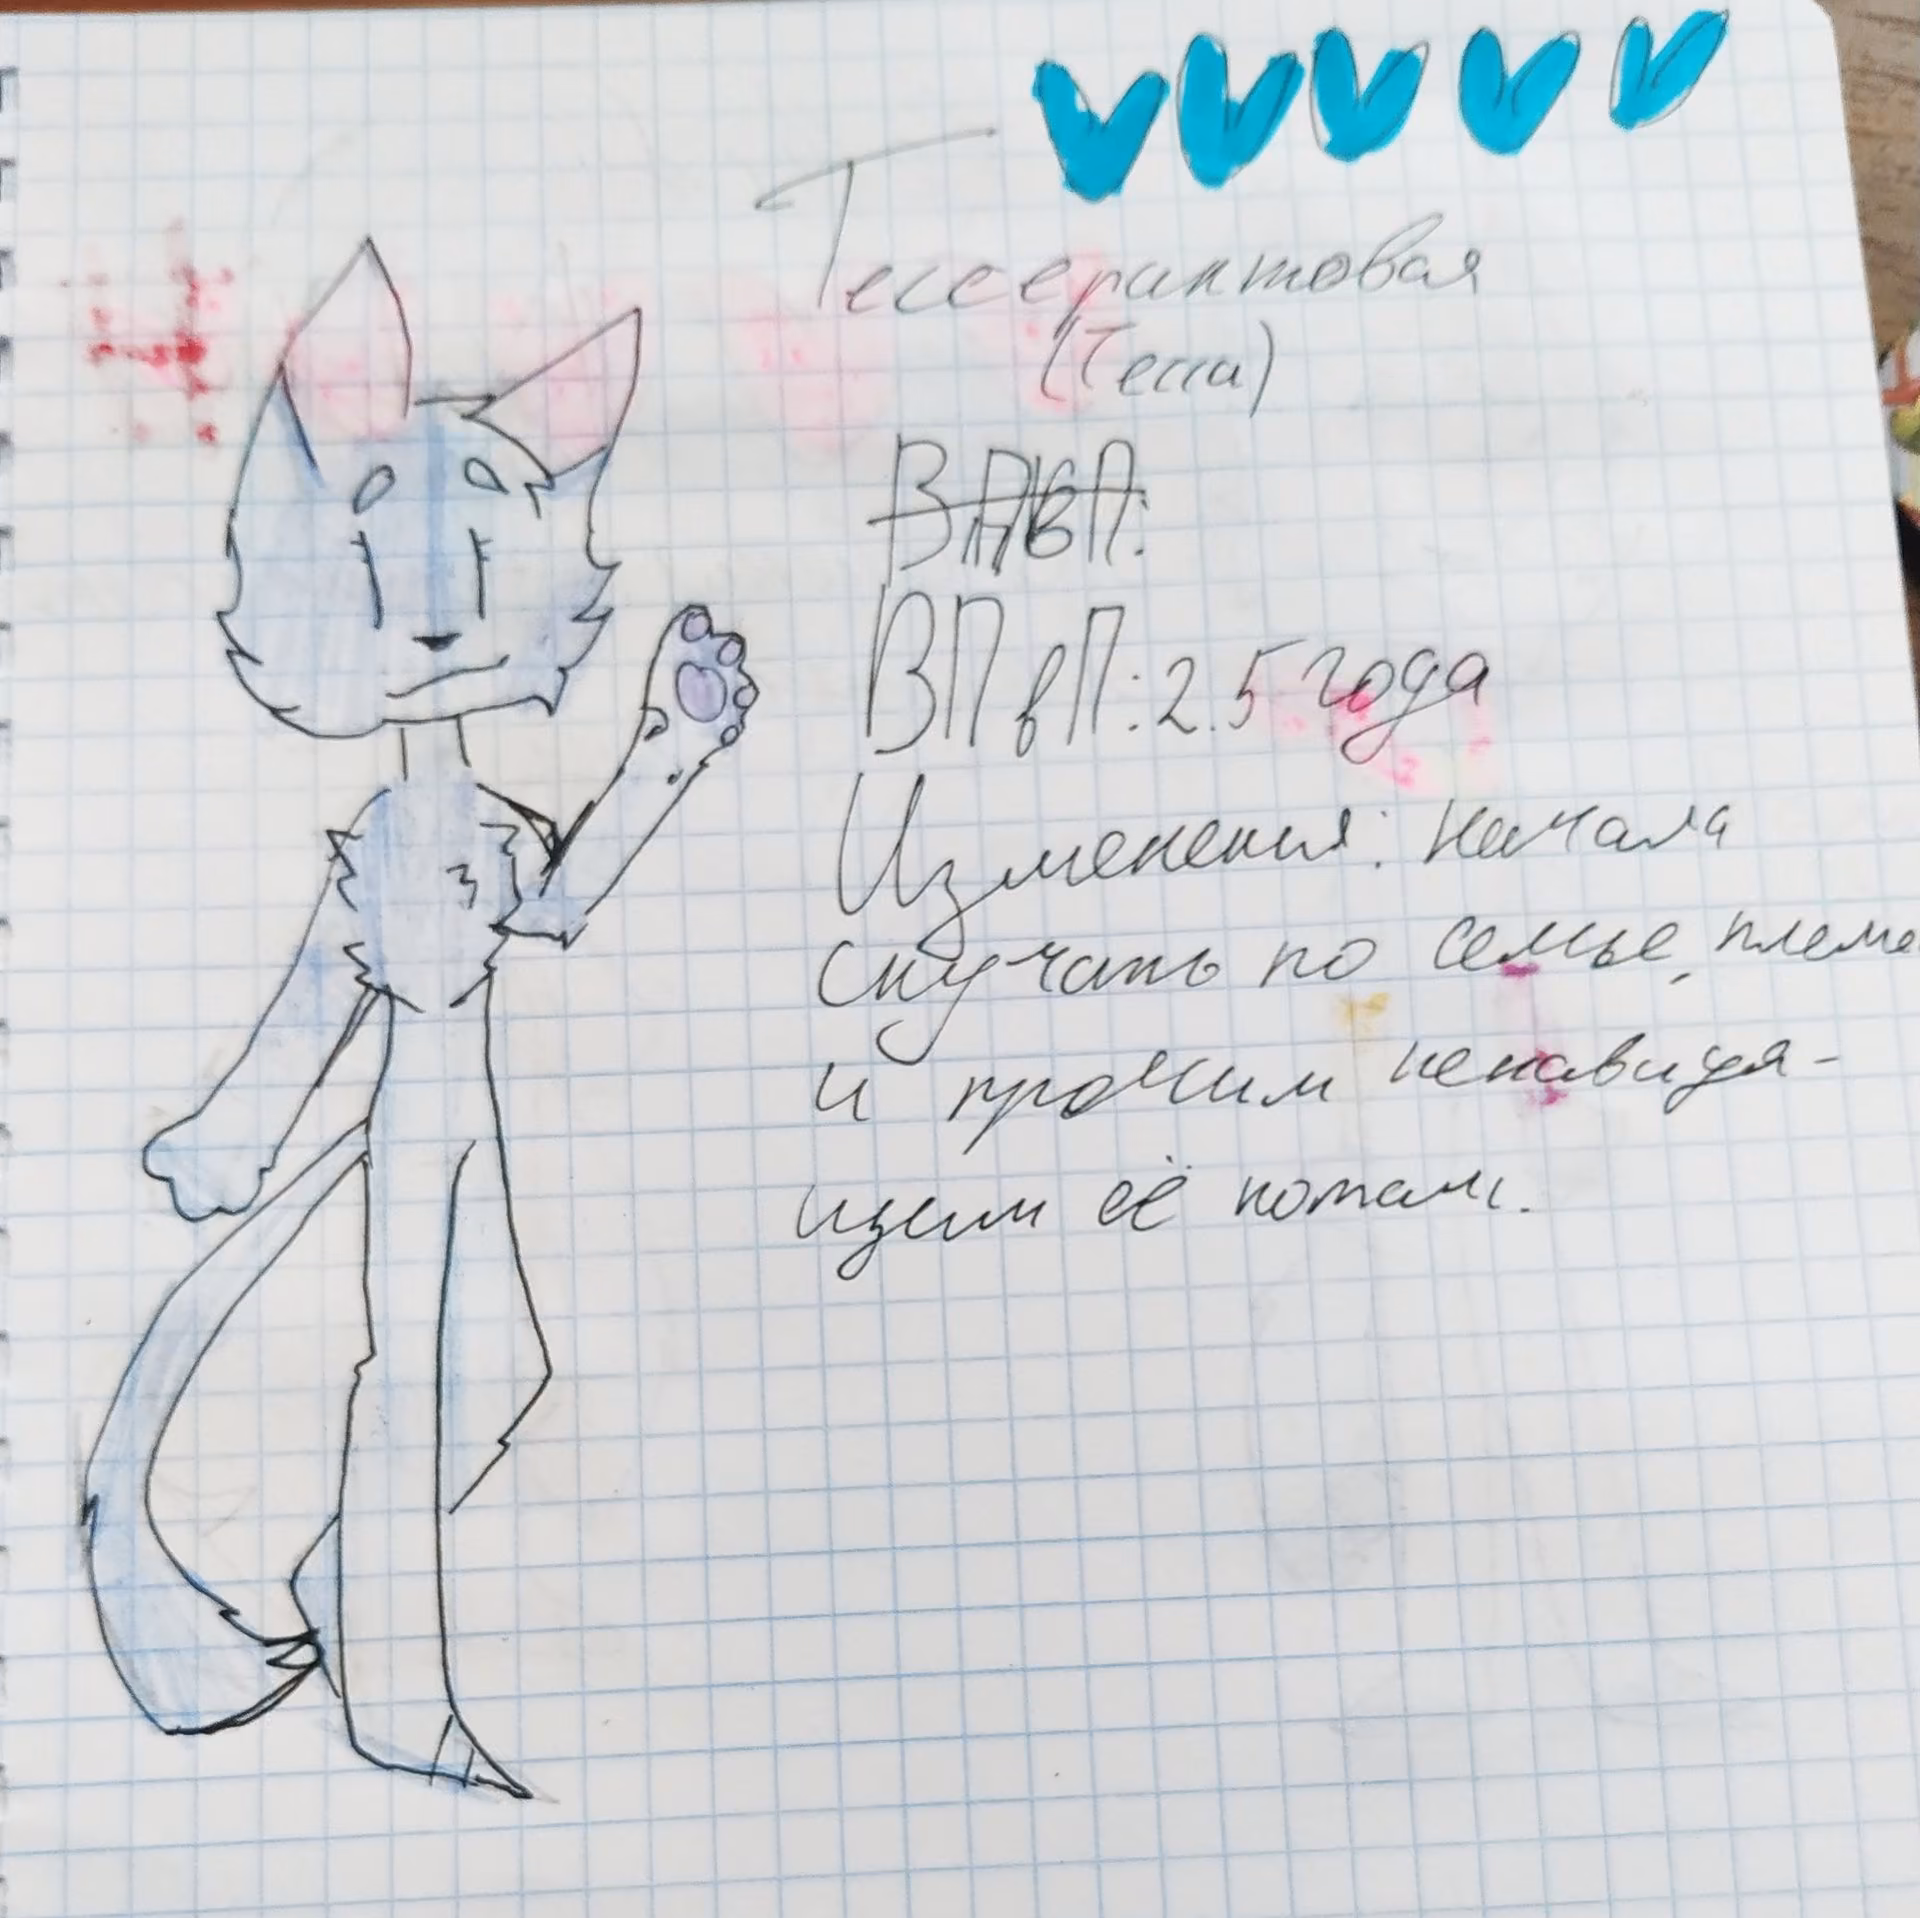 Тессерактовая
(Тесса)
ВПвП:
ВПвП: 2.5 года
Изменения: Начала
скучать по семье, племе
и прочим ненавидя-
щим её котам.